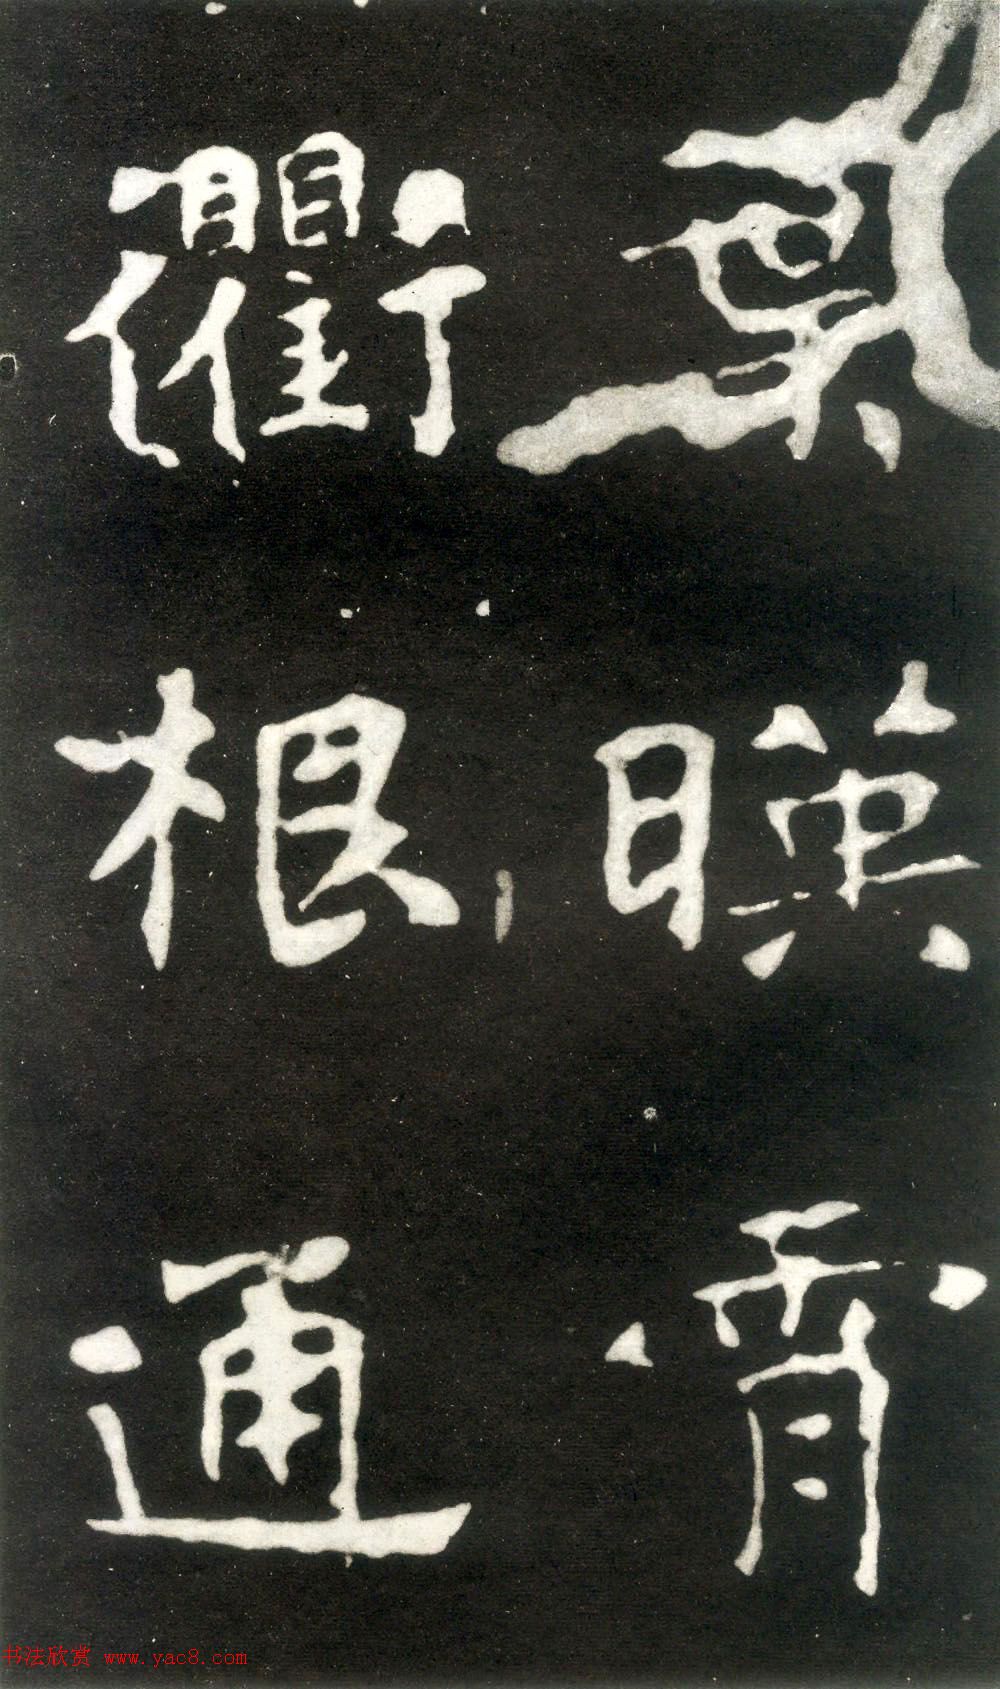 葉暎霄
衢根通
书法欣赏 www.yac8.com